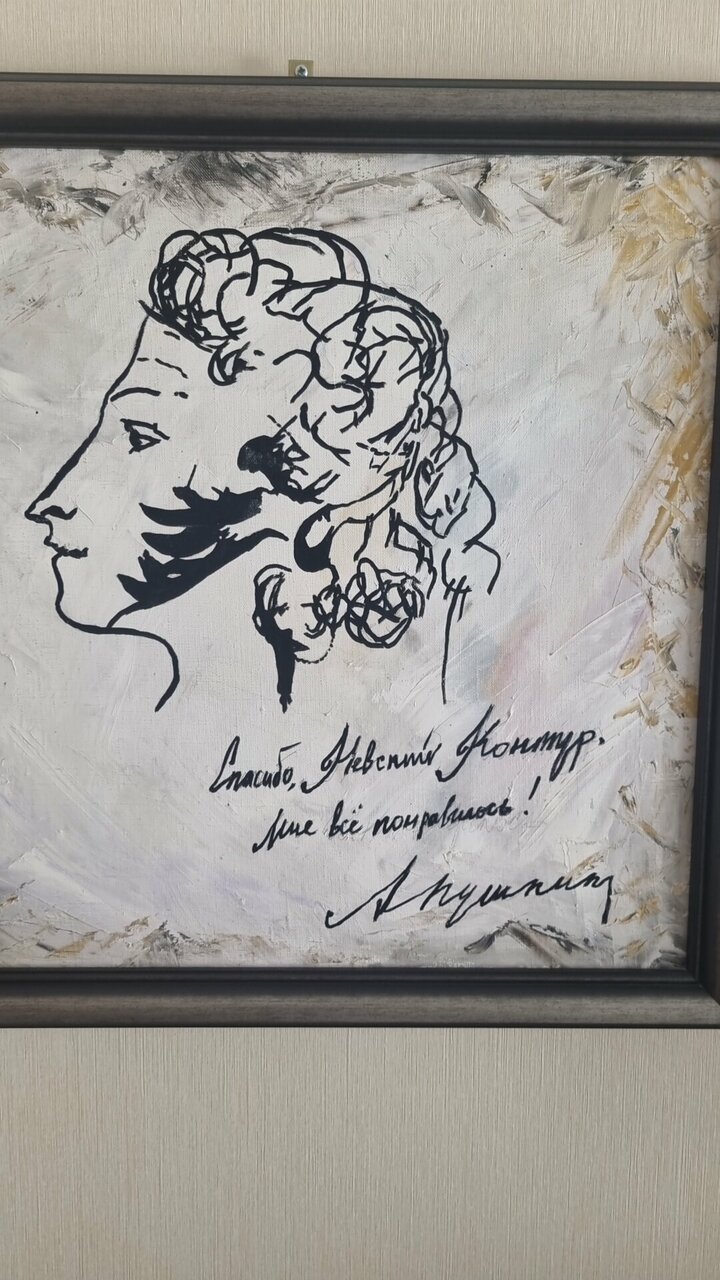 Спасибо, Невский Контур.
Мне всё понравилось!
А Пушкин